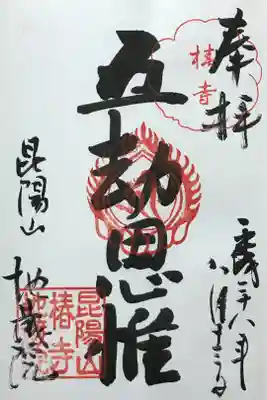 奉拝
平成二十八年
椿寺
五劫思惟
昆陽山
地蔵院
昆陽山
椿寺
地蔵院